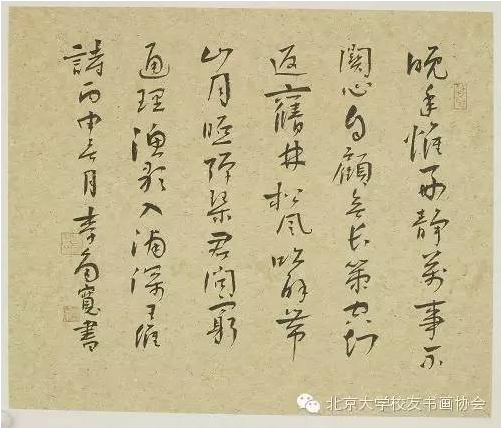 晚年惟好靜萬事不
關心自顧無長策空知
返舊林松風吹解帶
山月照彈琴君問窮
通理漁歌入浦深王維
詩丙申月李寬書
北京大学校友书画协会